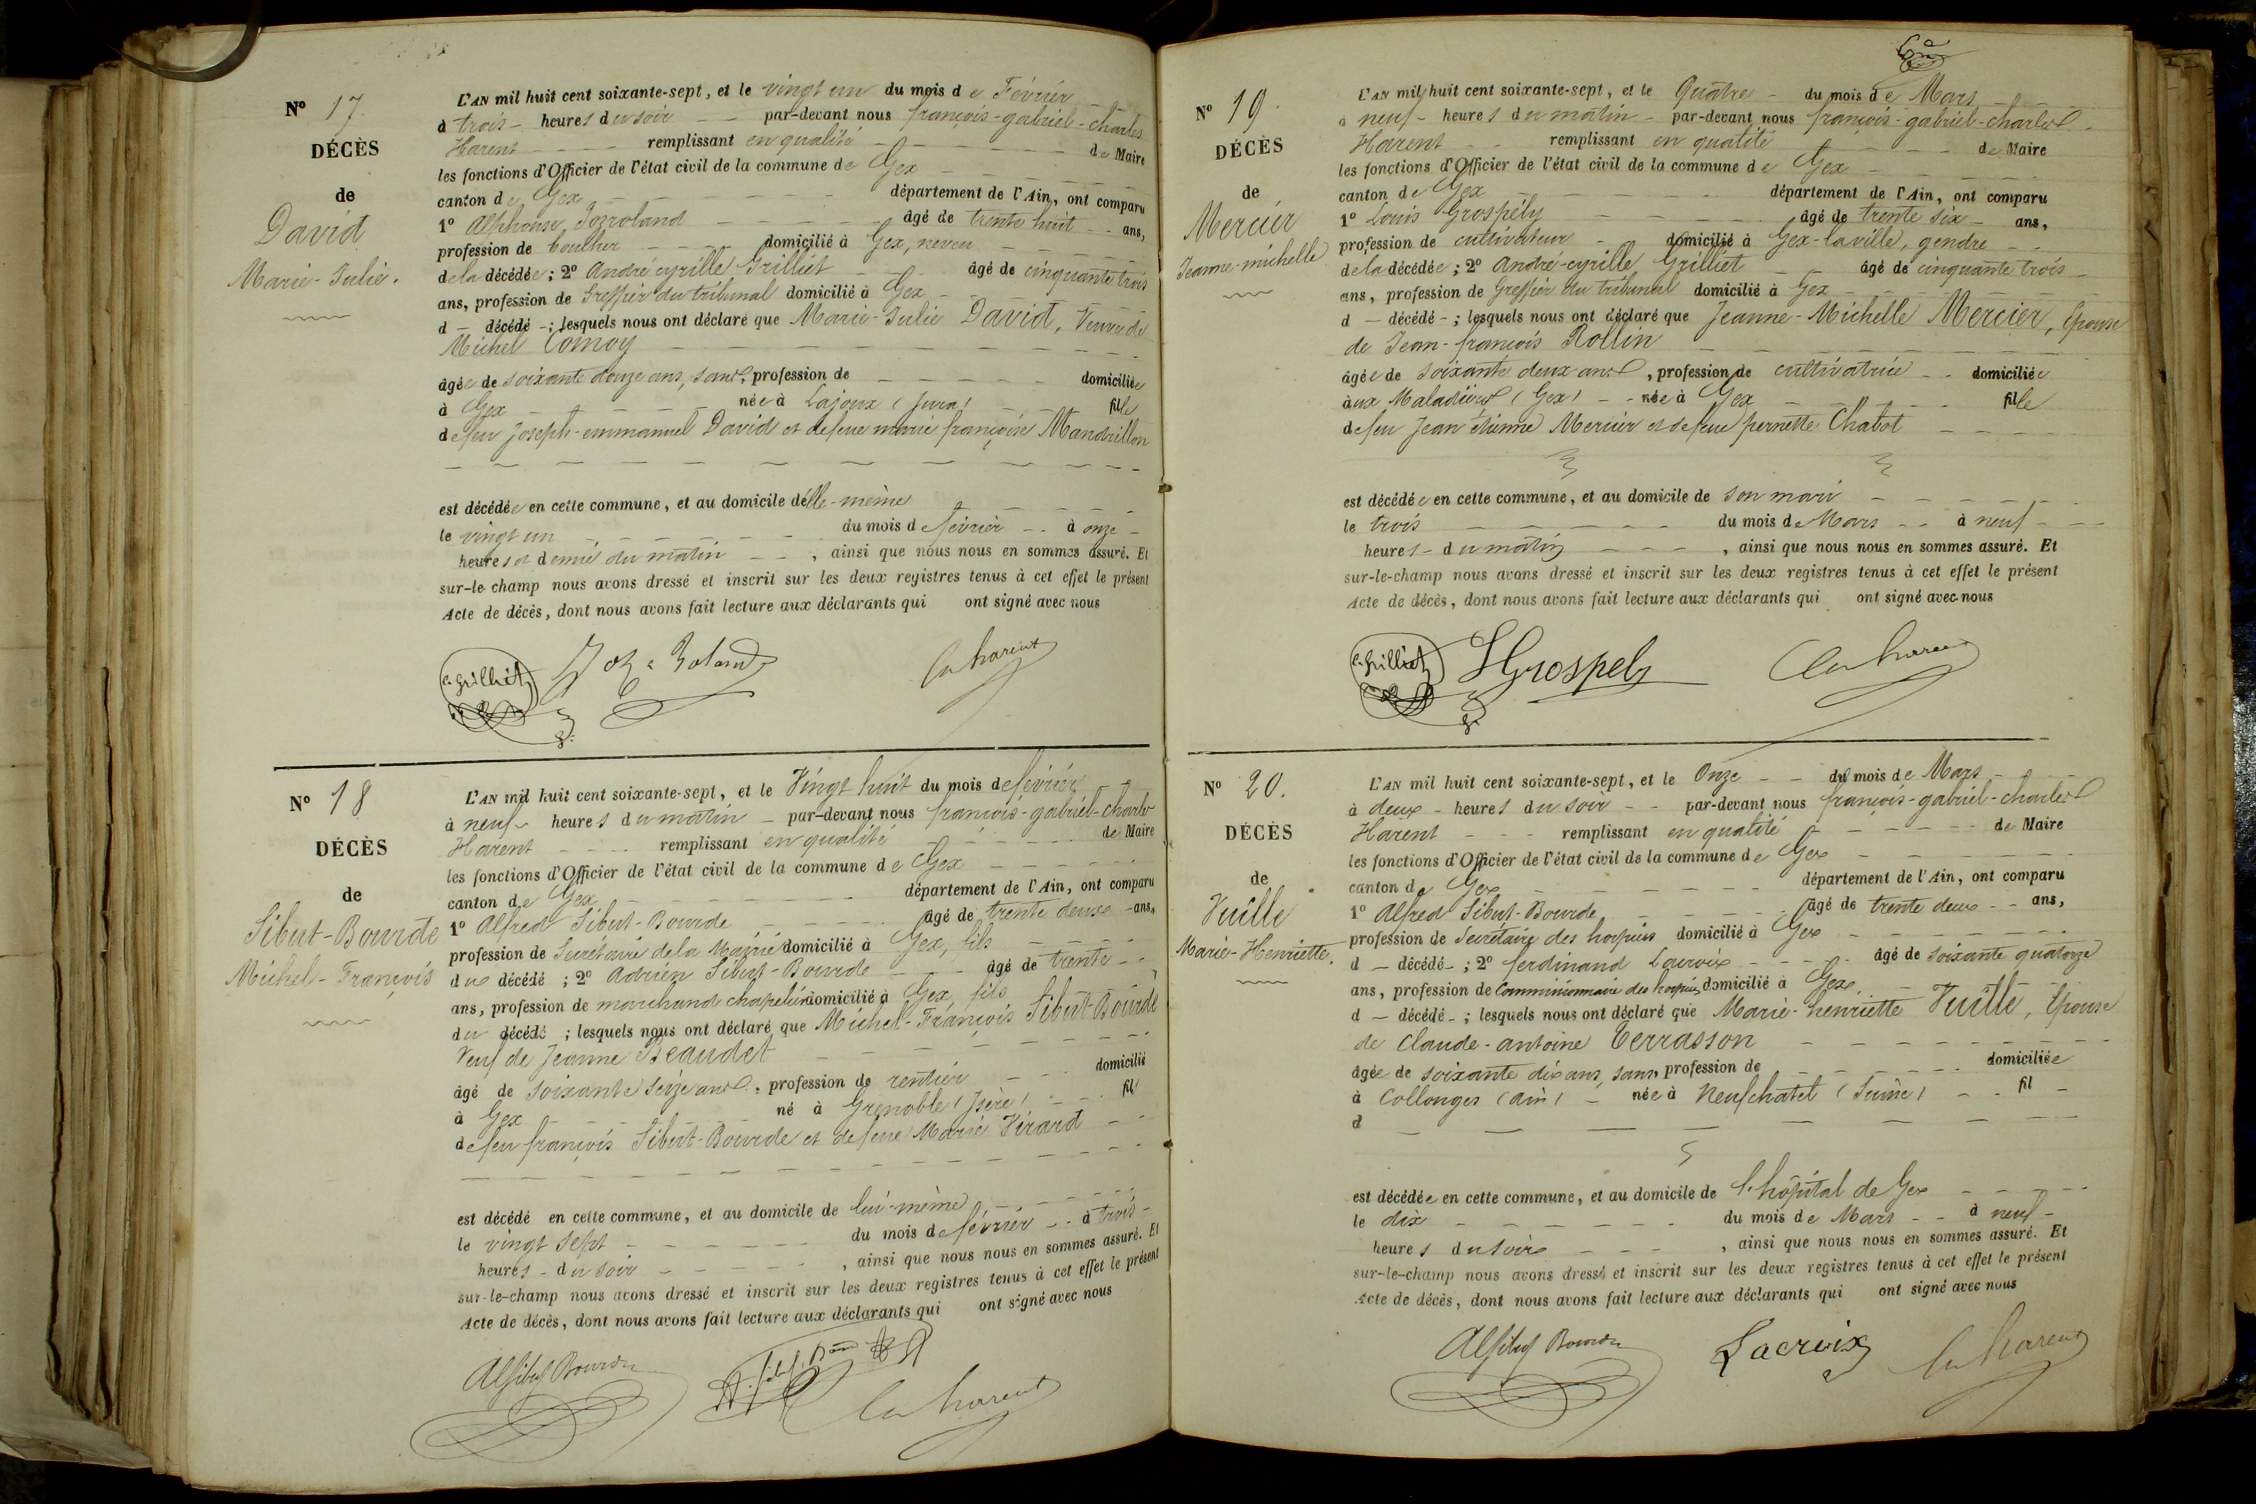 N° 17.
DÉCÈS
de
David
Marie-Julie.
L'AN mil huit cent soixante-sept, et le vingt un du mois de Février
à trois heures du soir par-devant nous françois-gabriel-charles
Harent remplissant en qualité de Maire
les fonctions d'Officier de l'état civil de la commune de Gex
canton de Gex département de l'Ain, ont comparu
1° Alphonse Jozroland âgé de trente huit ans,
profession de domicilié à Gex, neveu
de la décédée; 2° André cyrille Grilliet âgé de cinquante trois
ans, profession de Greffier du tribunal domicilié à Gex
d décédé; lesquels nous ont déclaré que Marie-Julie David, Veuve de
Michel Comoy
âgée de soixante douze ans, sans profession de domiciliée
à Gex née à Lajoux (Jura) fille
de feu Joseph-emmanuel David et de feue marie françoise Mandrillon
est décédée en cette commune, et au domicile d'elle-même
le vingt un du mois de février à onze
heures et demie du matin, ainsi que nous nous en sommes assuré. Et
sur-le-champ nous avons dressé et inscrit sur les deux registres tenus à cet effet le présent
Acte de décès, dont nous avons fait lecture aux déclarants qui ont signé avec nous
C. Grilliet Joz-Roland Ch harent
N° 18
DÉCÈS
de
Sibut-Bourde
Michel-François
L'AN mil huit cent soixante-sept, et le Vingt huit du mois de février
à neuf heures du matin par-devant nous françois-gabriel-charles
Harent remplissant en qualité de Maire
les fonctions d'Officier de l'état civil de la commune de Gex
canton de Gex département de l'Ain, ont comparu
1° Alfred Sibut-Bourde âgé de trente deux ans,
profession de Secrétaire de la Mairie domicilié à Gex, fils
du décédé; 2° Adrien Sibut-Bourde âgé de trente
ans, profession de marchand chapelier domicilié à Gex, fils
du décédé; lesquels nous ont déclaré que Michel-François Sibut-Bourde
Veuf de Jeanne Beaudet
âgé de soixante seize ans, profession de rentier domicilié
à Gex né à Grenoble (Isère) fils
de feu françois Sibut-Bourde et de feue Marie Virard
est décédé en cette commune, et au domicile de lui-même
le vingt sept du mois de février à trois
heures du soir, ainsi que nous nous en sommes assuré. Et
sur-le-champ nous avons dressé et inscrit sur les deux registres tenus à cet effet le présent
Acte de décès, dont nous avons fait lecture aux déclarants qui ont signé avec nous
Alf Sibut Bourde Ch harent
N° 19.
DÉCÈS
de
Mercier
Jeanne-michelle
L'AN mil huit cent soixante-sept, et le Quatre du mois de Mars
à neuf heures du matin par-devant nous françois-gabriel-charles
Harent remplissant en qualité de Maire
les fonctions d'Officier de l'état civil de la commune de Gex
canton de Gex département de l'Ain, ont comparu
1° Louis Grospély âgé de trente six ans,
profession de cultivateur domicilié à Gex-la-ville, gendre
de la décédée; 2° André-cyrille Grilliet âgé de cinquante trois
ans, profession de Greffier du tribunal domicilié à Gex
d décédé; lesquels nous ont déclaré que Jeanne-Michelle Mercier, Epouse
de Jean-françois Rollin
âgée de soixante deux ans, profession de cultivatrice domiciliée
aux Maladières (Gex) née à Gex fille
de feu Jean étienne Mercier et de feue pernette Chabot
est décédée en cette commune, et au domicile de son mari
le trois du mois de Mars à neuf
heures du matin, ainsi que nous nous en sommes assuré. Et
sur-le-champ nous avons dressé et inscrit sur les deux registres tenus à cet effet le présent
Acte de décès, dont nous avons fait lecture aux déclarants qui ont signé avec nous
C. Grilliet LGrospely Ch harent
N° 20.
DÉCÈS
de
Vuille
Marie-Henriette.
L'AN mil huit cent soixante-sept, et le Onze du mois de Mars
à deux heures du soir par-devant nous françois-gabriel-charles
Harent remplissant en qualité de Maire
les fonctions d'Officier de l'état civil de la commune de Gex
canton de Gex département de l'Ain, ont comparu
1° Alfred Sibut-Bourde âgé de trente deux ans,
profession de Secrétaire des hospices domicilié à Gex
d décédé; 2° ferdinand Lacroix âgé de soixante quatorze
ans, profession de Commissionnaire des hospices domicilié à Gex
d décédé; lesquels nous ont déclaré que Marie-henriette Vuille, Epouse
de Claude-antoine Terrasson
âgée de soixante dix ans, sans profession de domiciliée
à Collonges (Ain) née à Neufchatel (Suisse) fil
d
est décédée en cette commune, et au domicile de l'hôpital de Gex
le dix du mois de Mars à neuf
heures du soir, ainsi que nous nous en sommes assuré. Et
sur-le-champ nous avons dressé et inscrit sur les deux registres tenus à cet effet le présent
Acte de décès, dont nous avons fait lecture aux déclarants qui ont signé avec nous
Alf Sibut Bourde Lacroix Ch harent